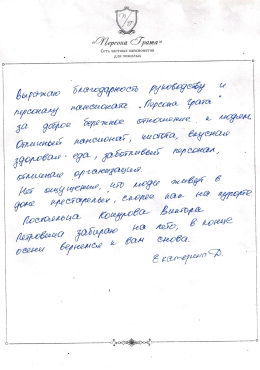 «Персона Грата»
Сеть частных пансионатов
для пожилых
Выражаю благодарность руководству и
персоналу пансионата "Персона грата"
за доброе бережное отношение к людям.
Отличный пансионат, чистота, вкусная
здоровая еда, заботливый персонал,
отличная организация.
Нет ощущения, что люди живут в
доме престарелых, скорее как на курорте
Постояльца Кокурова Виктора
Петровича забираю на лето, в конце
осени вернемся к вам снова.
Екатерина Д.